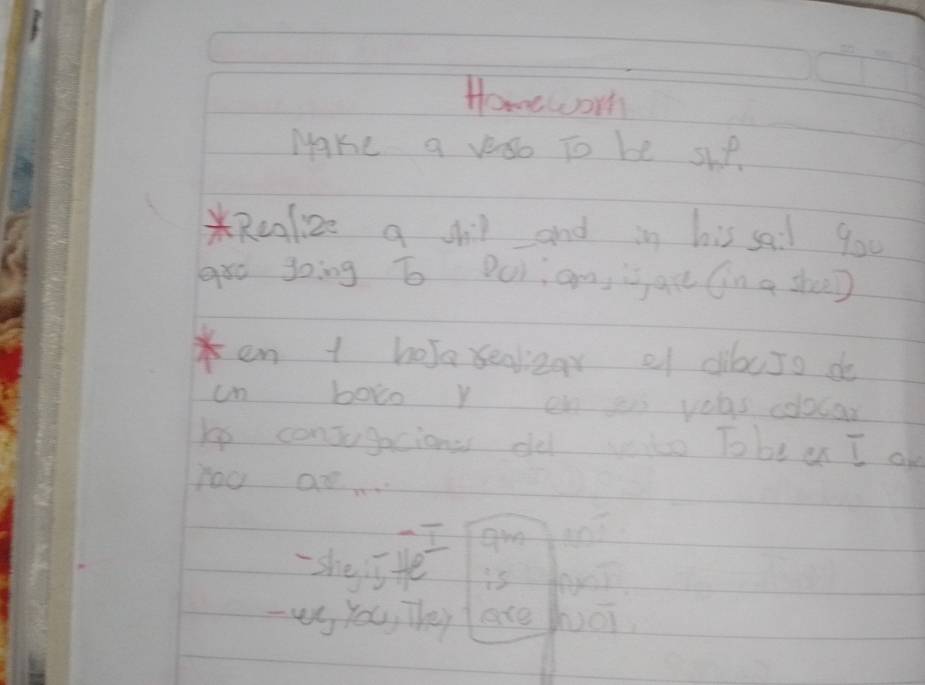 Homework
Make a verb To be ship.
*Realize a ship and in his sail you
are going to Put: am, is, are (in a sheet)
* en 1 hoja realizar el dibujo de
un barco y en sus velas colocar
las conjugaciones del verbo To be ex I am
You are...
- I am not
- she, it, He is not
- we, You, They are not.